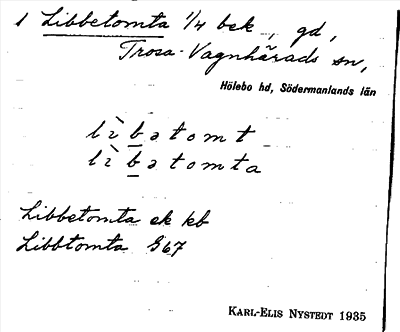 1 Libbetomta 1/4 bek, gd,
Trosa-Vagnhärads sn,
Hölebo hd, Södermanlands län
lìb̲ətomt
lìb̲ətomta
Libbetomta ek kb
Libbtomta S67
KARL-ELIS NYSTEDT 1935